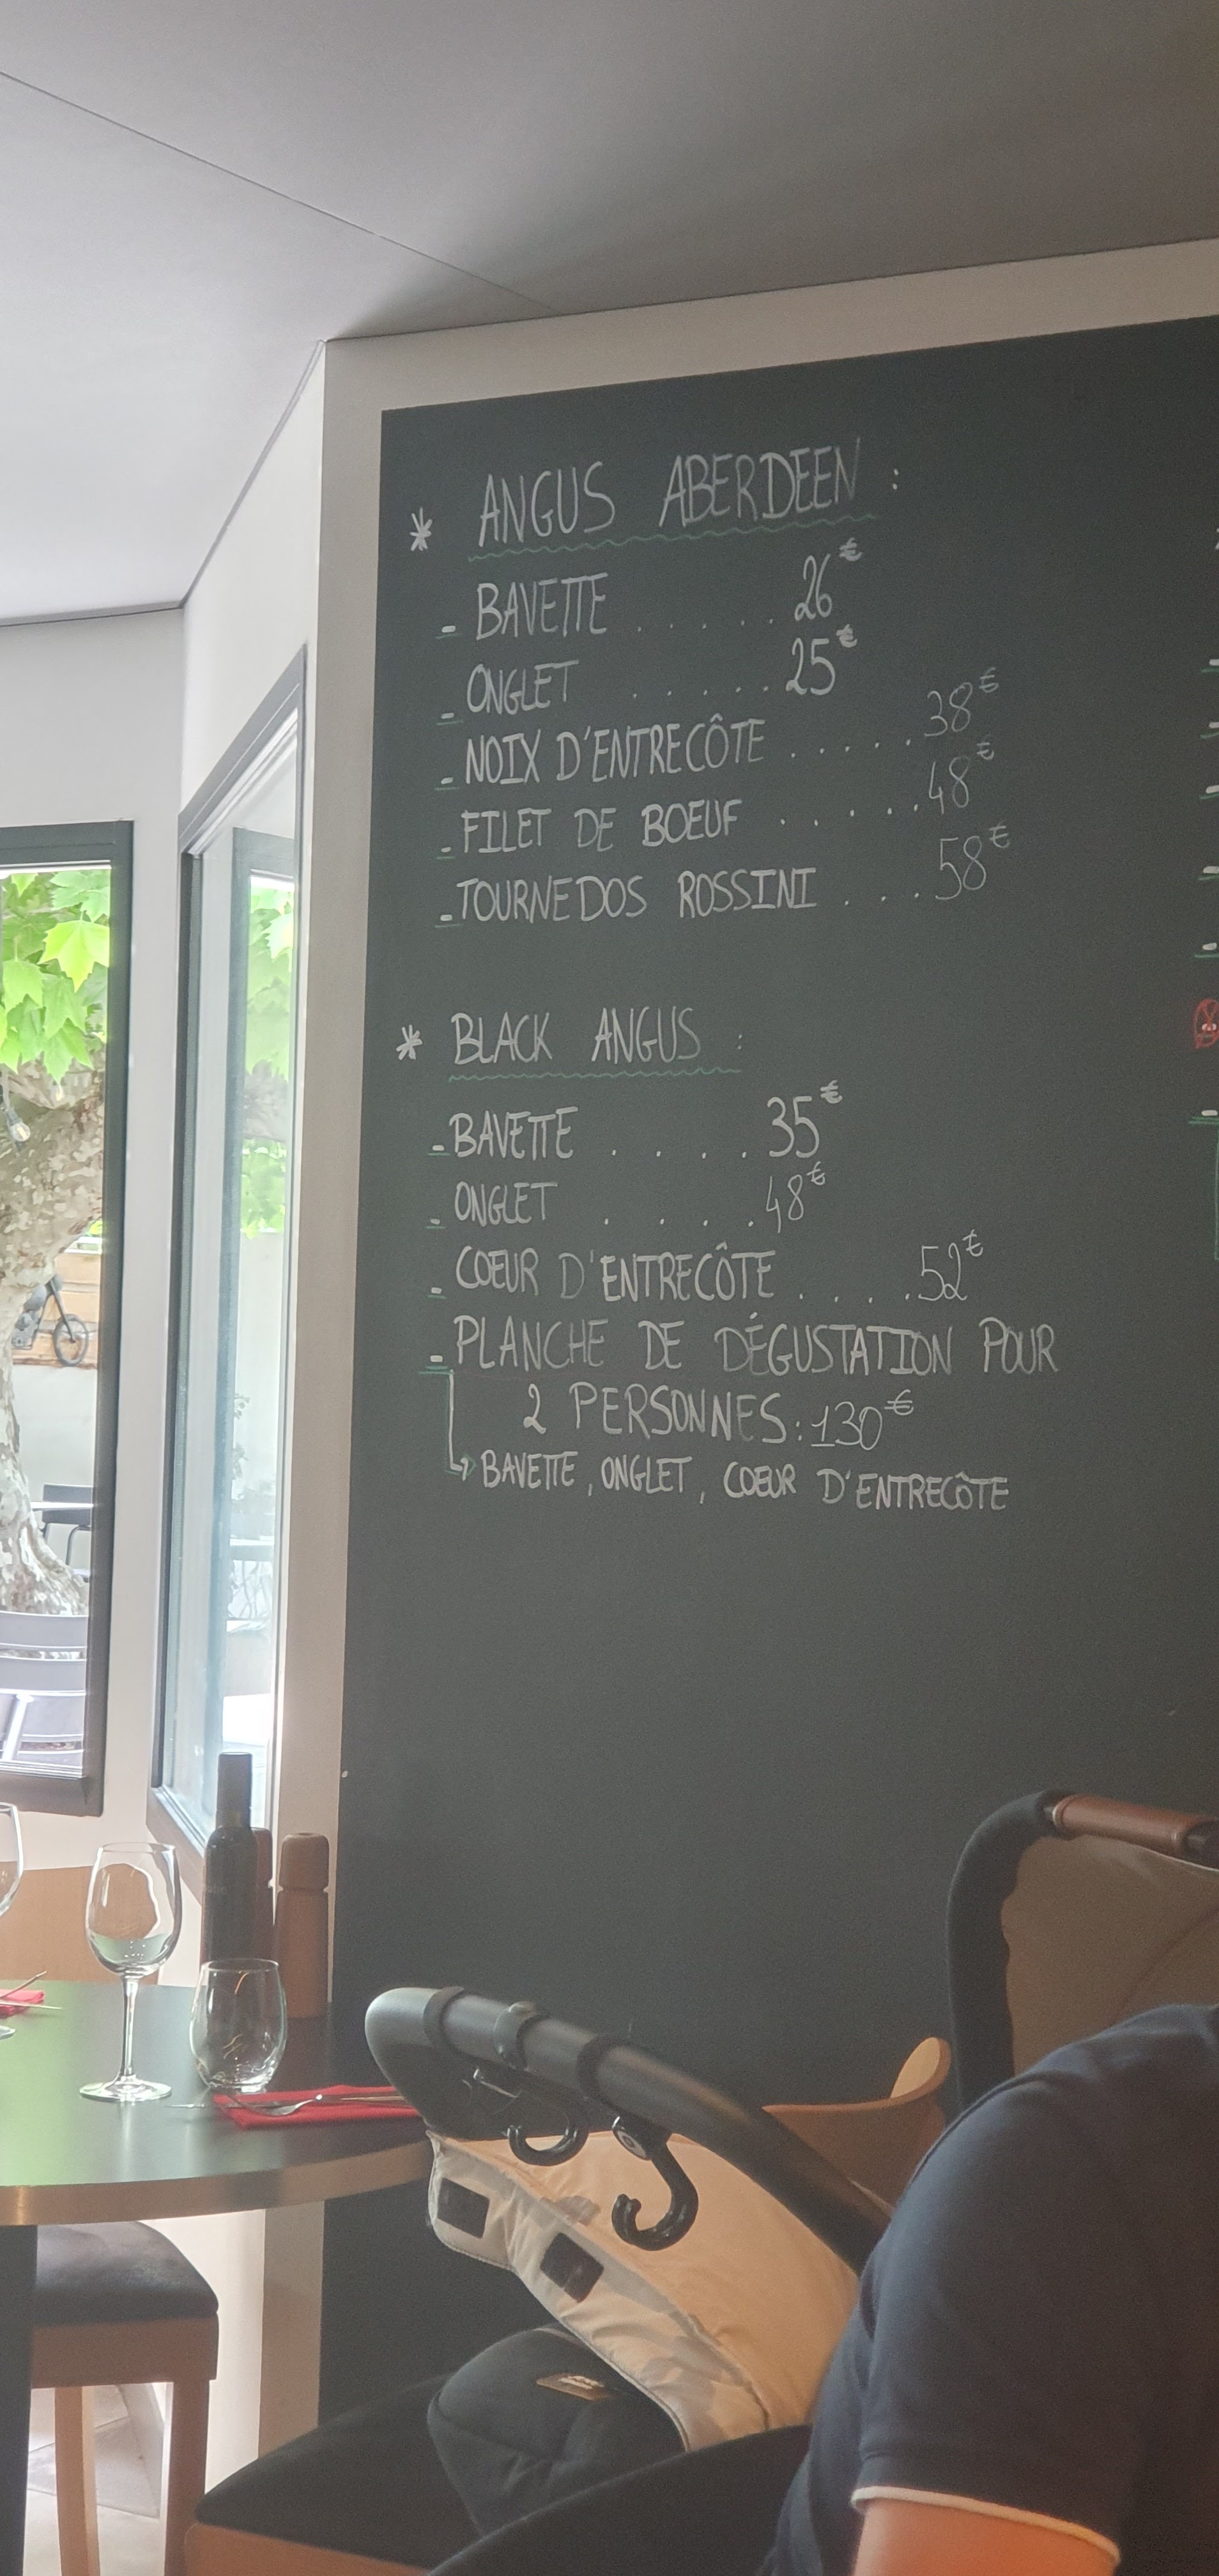 * ANGUS ABERDEEN :
- BAVETTE ...... 26€
- ONGLET ...... 25€
- NOIX D'ENTRECÔTE ..... 38€
- FILET DE BOEUF ..... 48€
- TOURNEDOS ROSSINI ... 58€
* BLACK ANGUS :
- BAVETTE .... 35€
- ONGLET .... 48€
- COEUR D'ENTRECÔTE .... 52€
- PLANCHE DE DÉGUSTATION POUR
2 PERSONNES: 130€
↳ BAVETTE, ONGLET, COEUR D'ENTRECÔTE